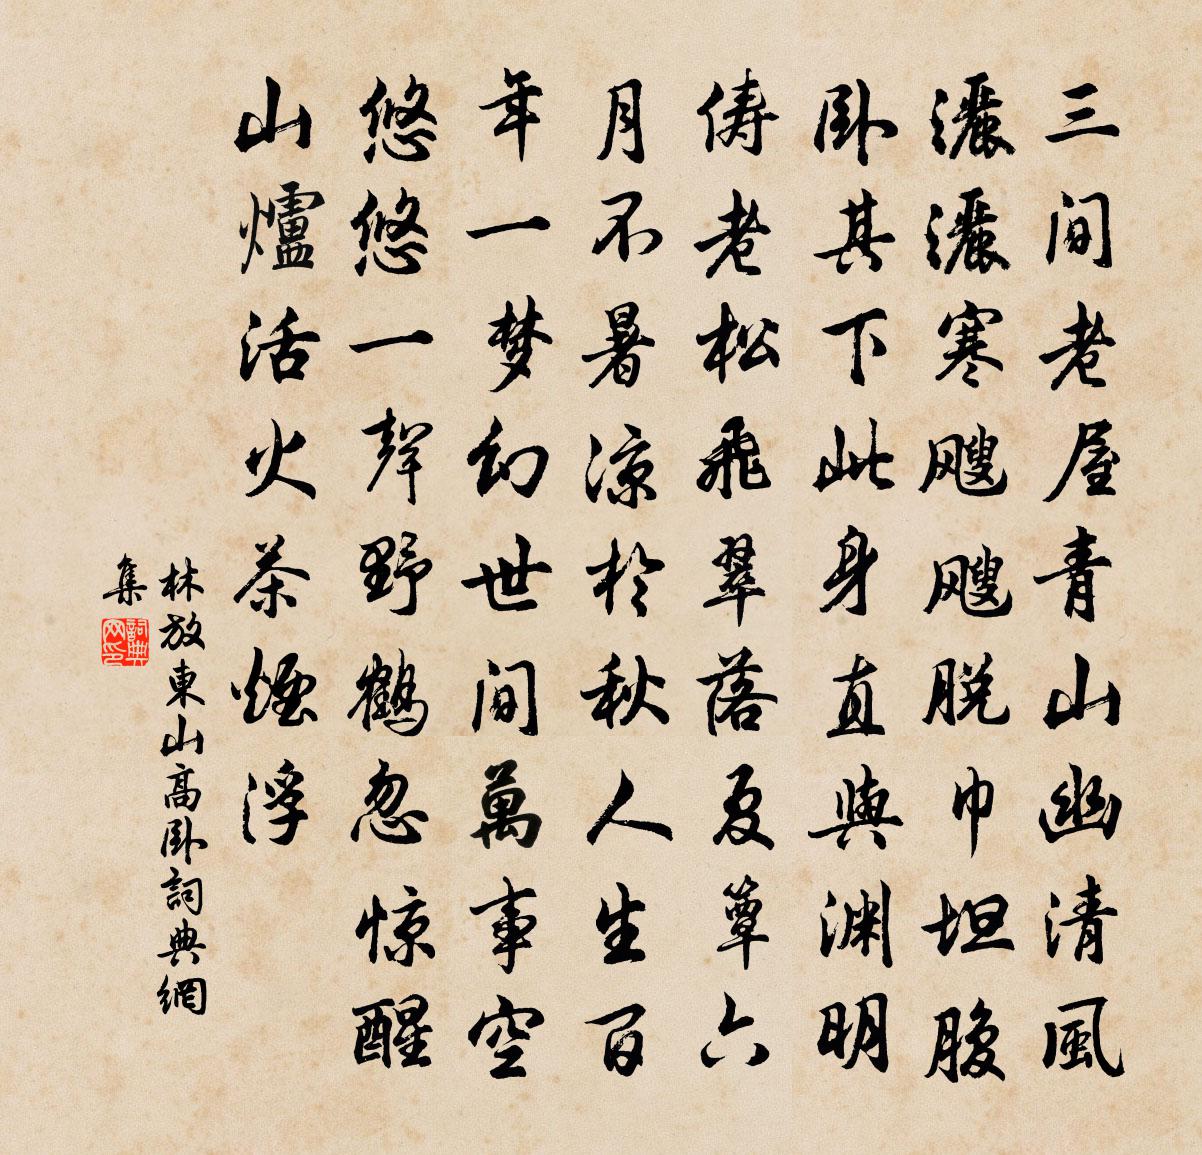 三间老屋青山幽清風
灑灑寒飕飕脱巾坦腹
卧其下此身直與渊明
俦老松飛翠落夏簟六
月不暑凉於秋人生百
年一梦幻世间萬事空
悠悠一聲野鶴忽惊醒
山爐活火茶煙浮
林放東山高卧詞典網
集
詞典
网印